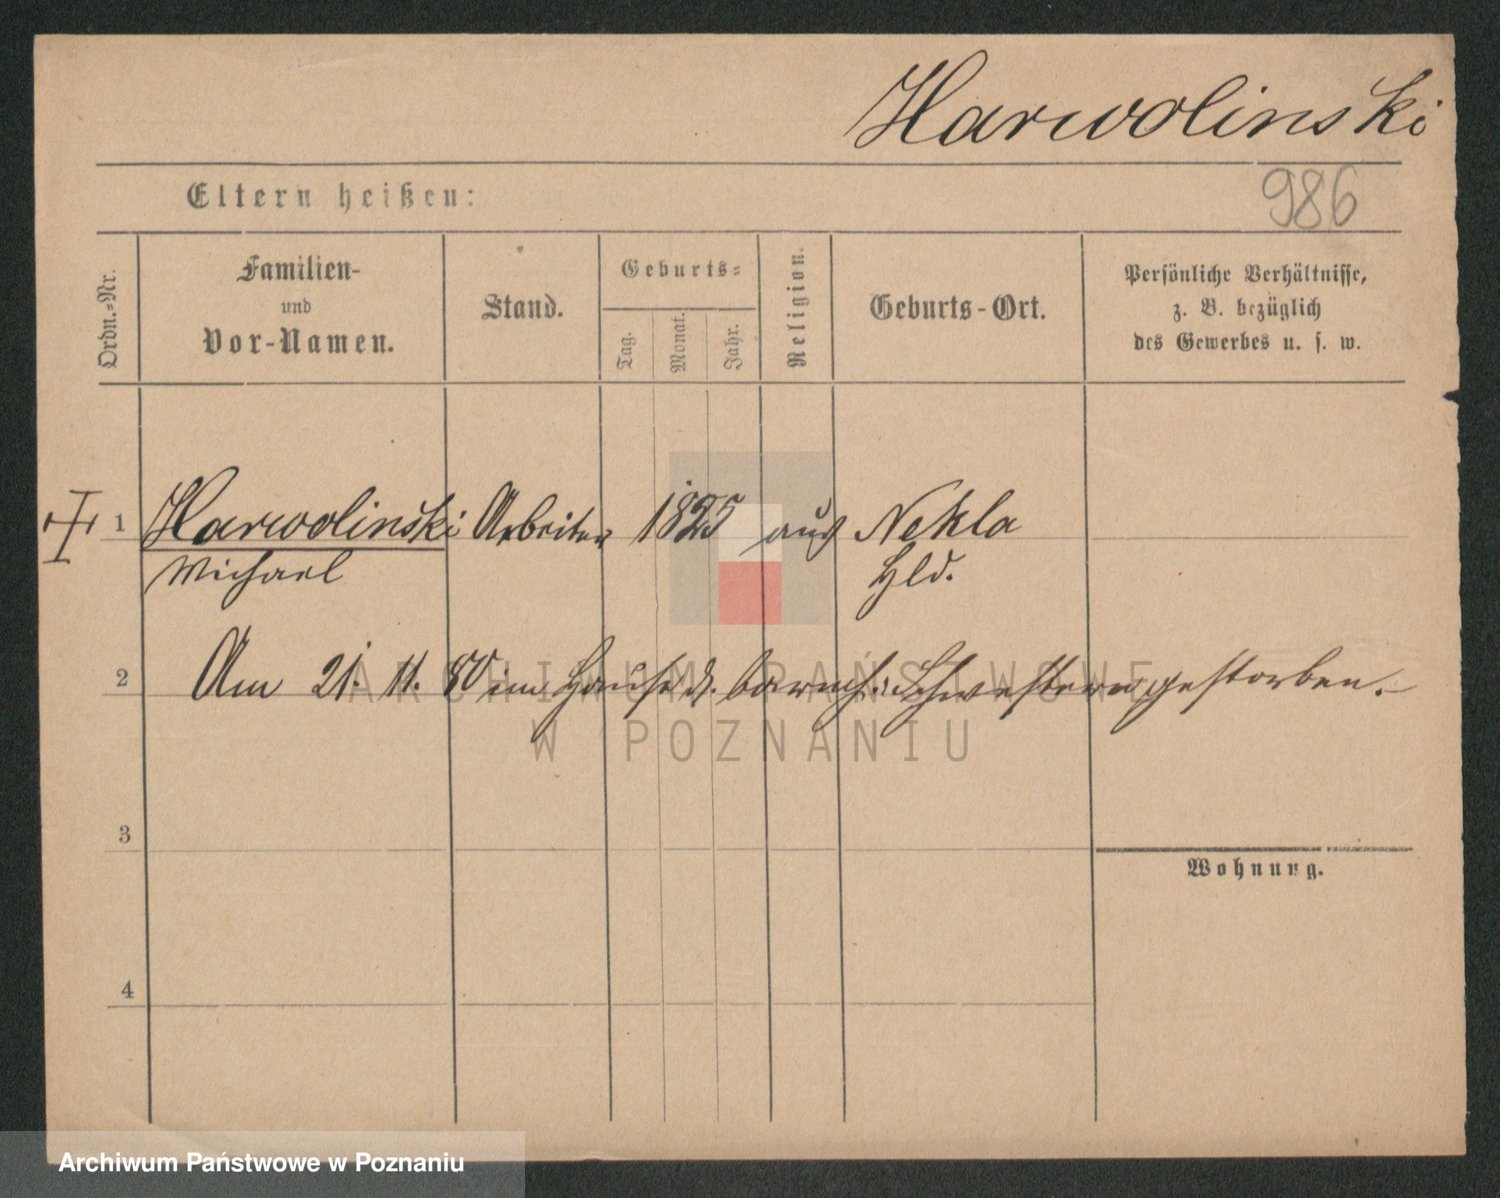 Harwolinski
Eltern heißen:
986
Ordn.-Nr.
Familien-
und
Vor-Namen.
Stand.
Geburts-
Tag.
Monat.
Jahr.
Religion.
Geburts-Ort.
Persönliche Verhältnisse,
z. B. bezüglich
des Gewerbes u. s. w.
1 Harwolinski Arbeiter 1825 aus Nekla
Michael Hld.
2 Am 21. 11. 80 im Hause d. barmh. Schwestern gestorben.
ARCHIWUM PAŃSTWOWE
W POZNANIU
3
Wohnung.
4
Archiwum Państwowe w Poznaniu